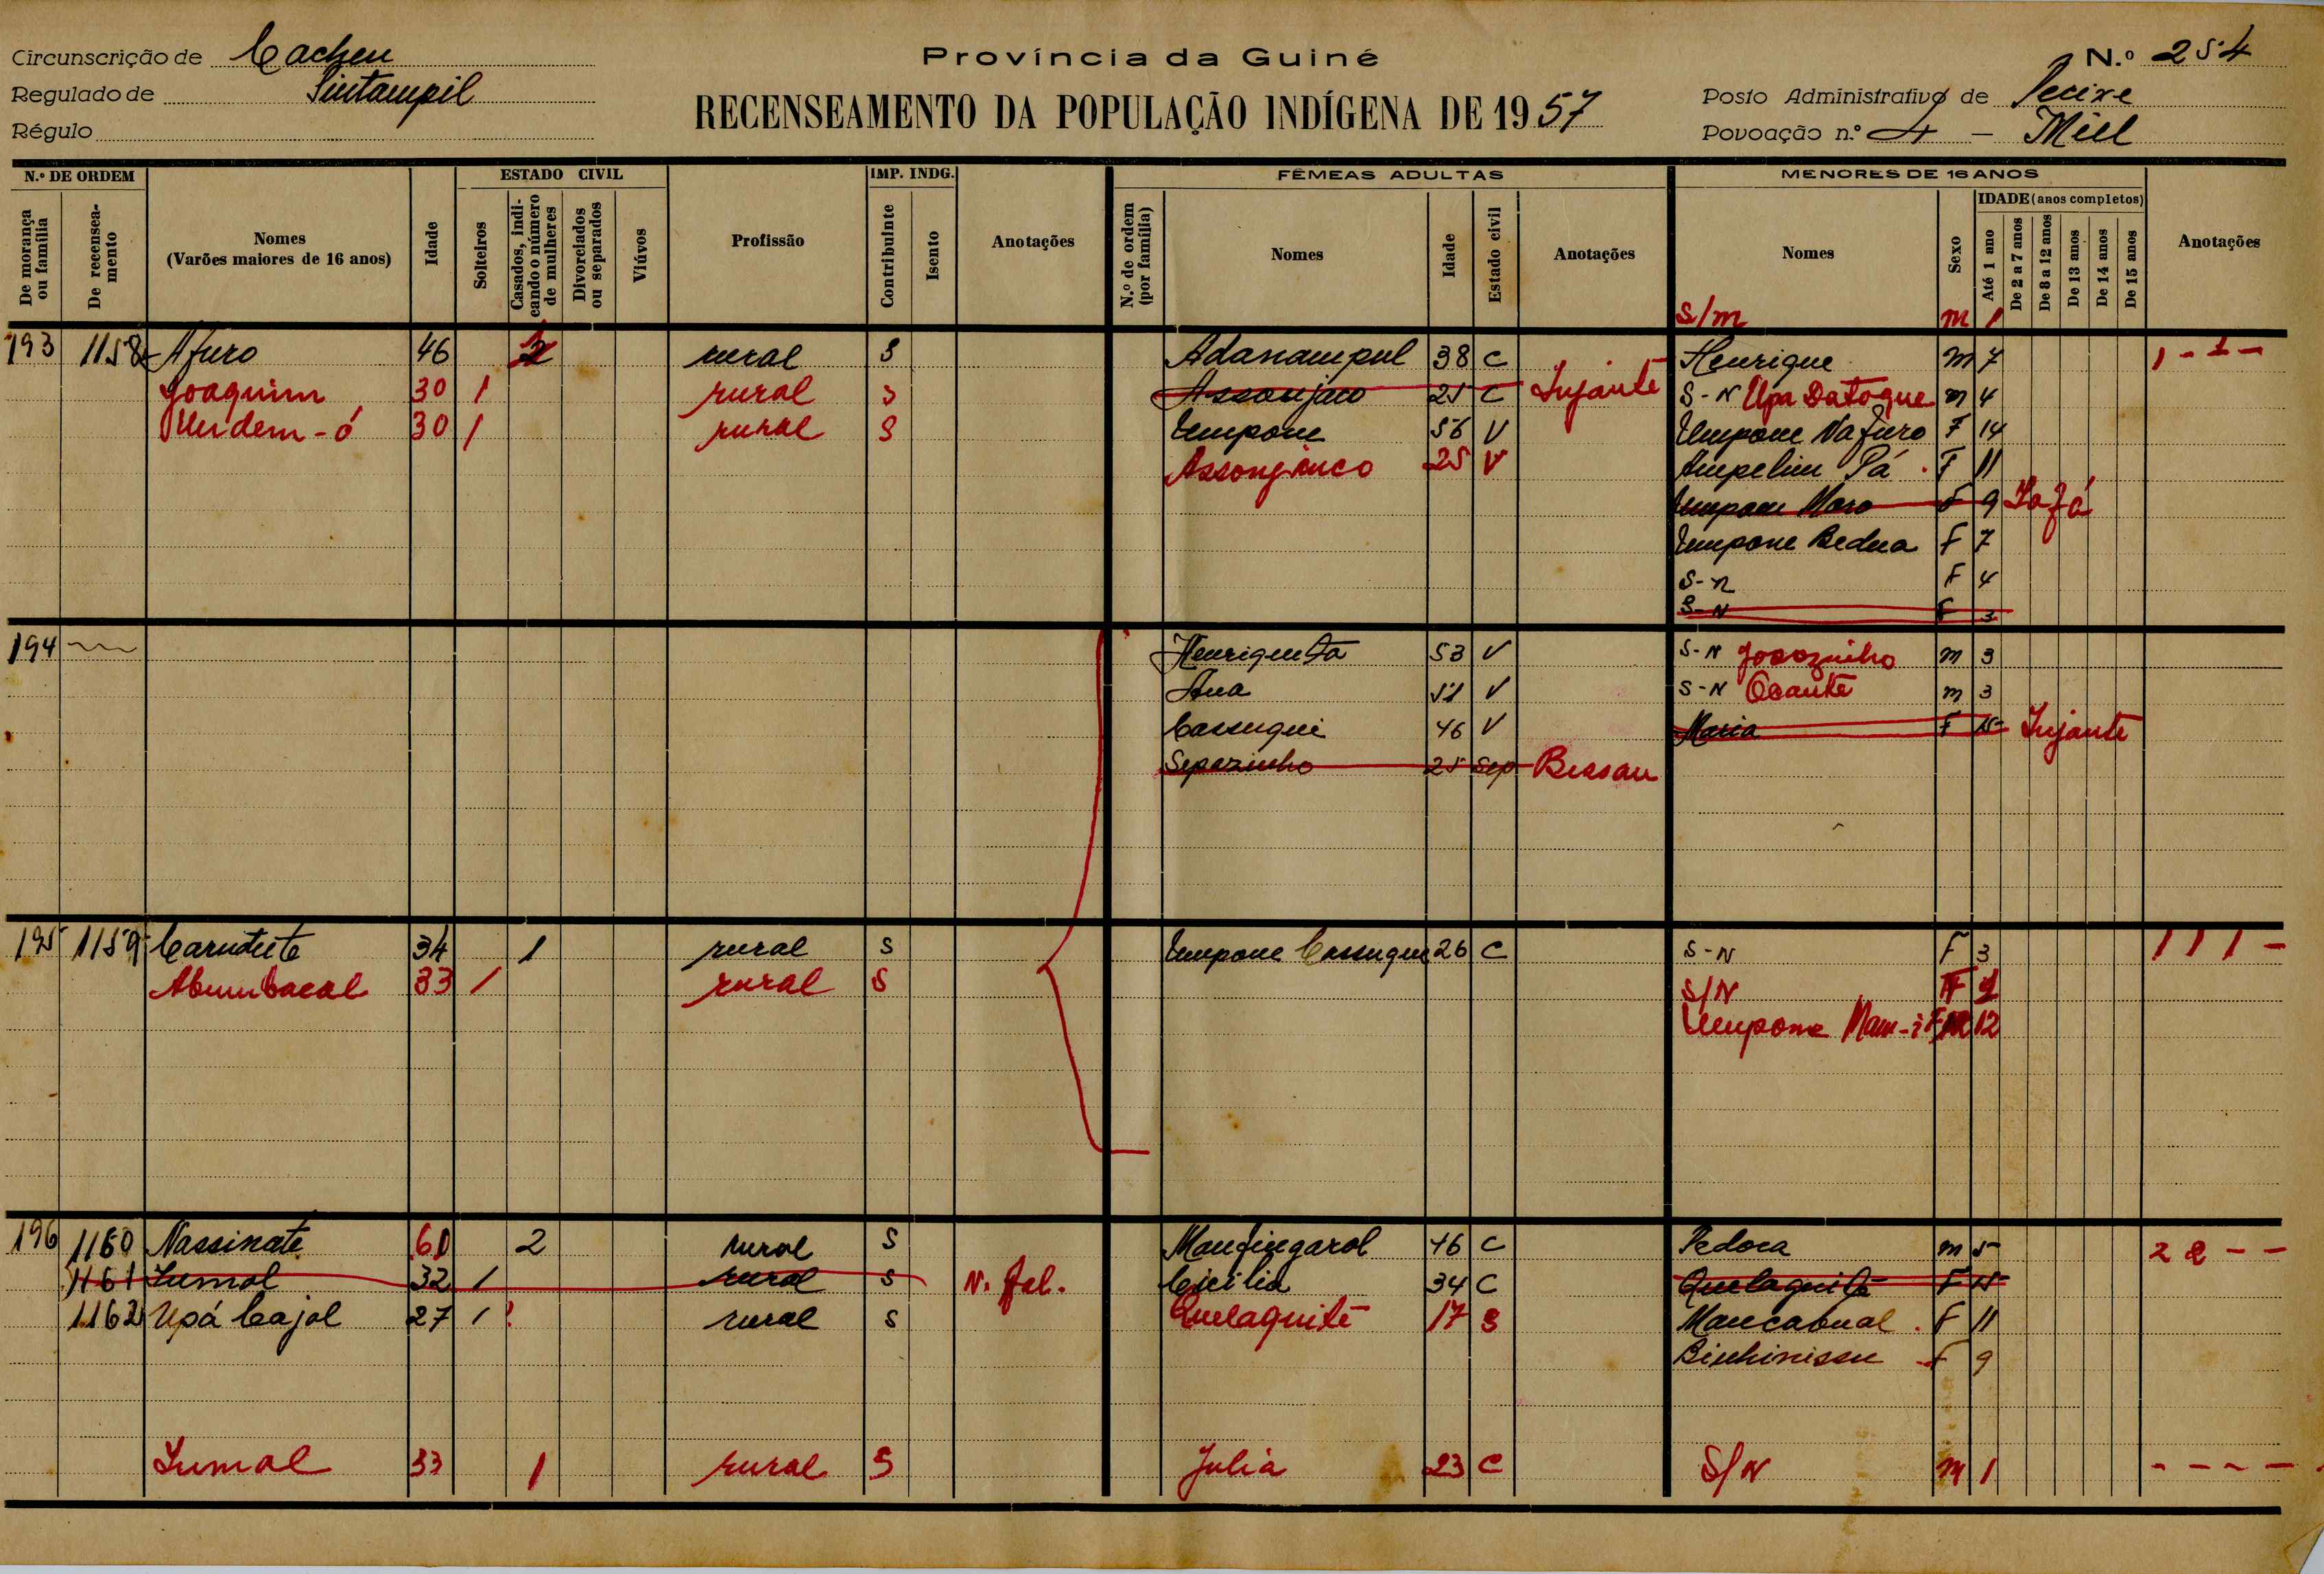 Circunscrição de Cacheu
Regulado de
Régulo
Província da Guiné
RECENSEAMENTO DA POPULAÇÃO INDÍGENA DE 1957
N.º 254
Posto Administrativo de Pecixe
Povoação n.º 4 -
N.º DE ORDEM
De morança ou família
De recenseamento
Nomes
(Varões maiores de 16 anos)
Idade
ESTADO CIVIL
Solteiros
Casados, indicando o número de mulheres
Divorciados ou separados
Viúvos
Profissão
IMP. INDG.
Contribuinte
Isento
Anotações
FÊMEAS ADULTAS
N.º de ordem (por família)
Nomes
Idade
Estado civil
Anotações
MENORES DE 16 ANOS
Nomes
Sexo
IDADE (anos completos)
Até 1 ano
De 2 a 7 anos
De 8 a 12 anos
De 13 anos
De 14 anos
De 15 anos
Anotações
S/m m 1
193 1158 Afuro 46 2 rural S Adanampul 38 C Henrique m 7 1 - 1 -
Joaquim 30 1 rural S 25 C S-N Upa Datoque m 4
30 1 rural S Umpone 56 V Umpone Nafuro F 14
25 V Ampelim Pá F 11
F 9
Umpone Bedua F 7
S-N F 4
S-N F 3
194 Henriqueta 53 V S-N Joaozinho m 3
Ana 51 V S-N Ocante m 3
Cassuqui 46 V Maria F 15
Sepozinho 25 Sep Bissau
195 1159 34 1 rural S Umpone 26 C S-N F 3 1 1 1 -
33 1 rural S S/N F
Umpone F 12
196 1160 Nassinate 60 2 rural S Manfingarol 46 C Pedora m 5 2 2 - -
1161 32 1 rural S Cicilia 34 C Quelaquite F 15
1162 Upá Cajol 27 1 rural S Quelaquite 17 S Mancabual F 11
Binhinissu F 9
33 1 rural S Julia 23 C S/N m 1 - - - -